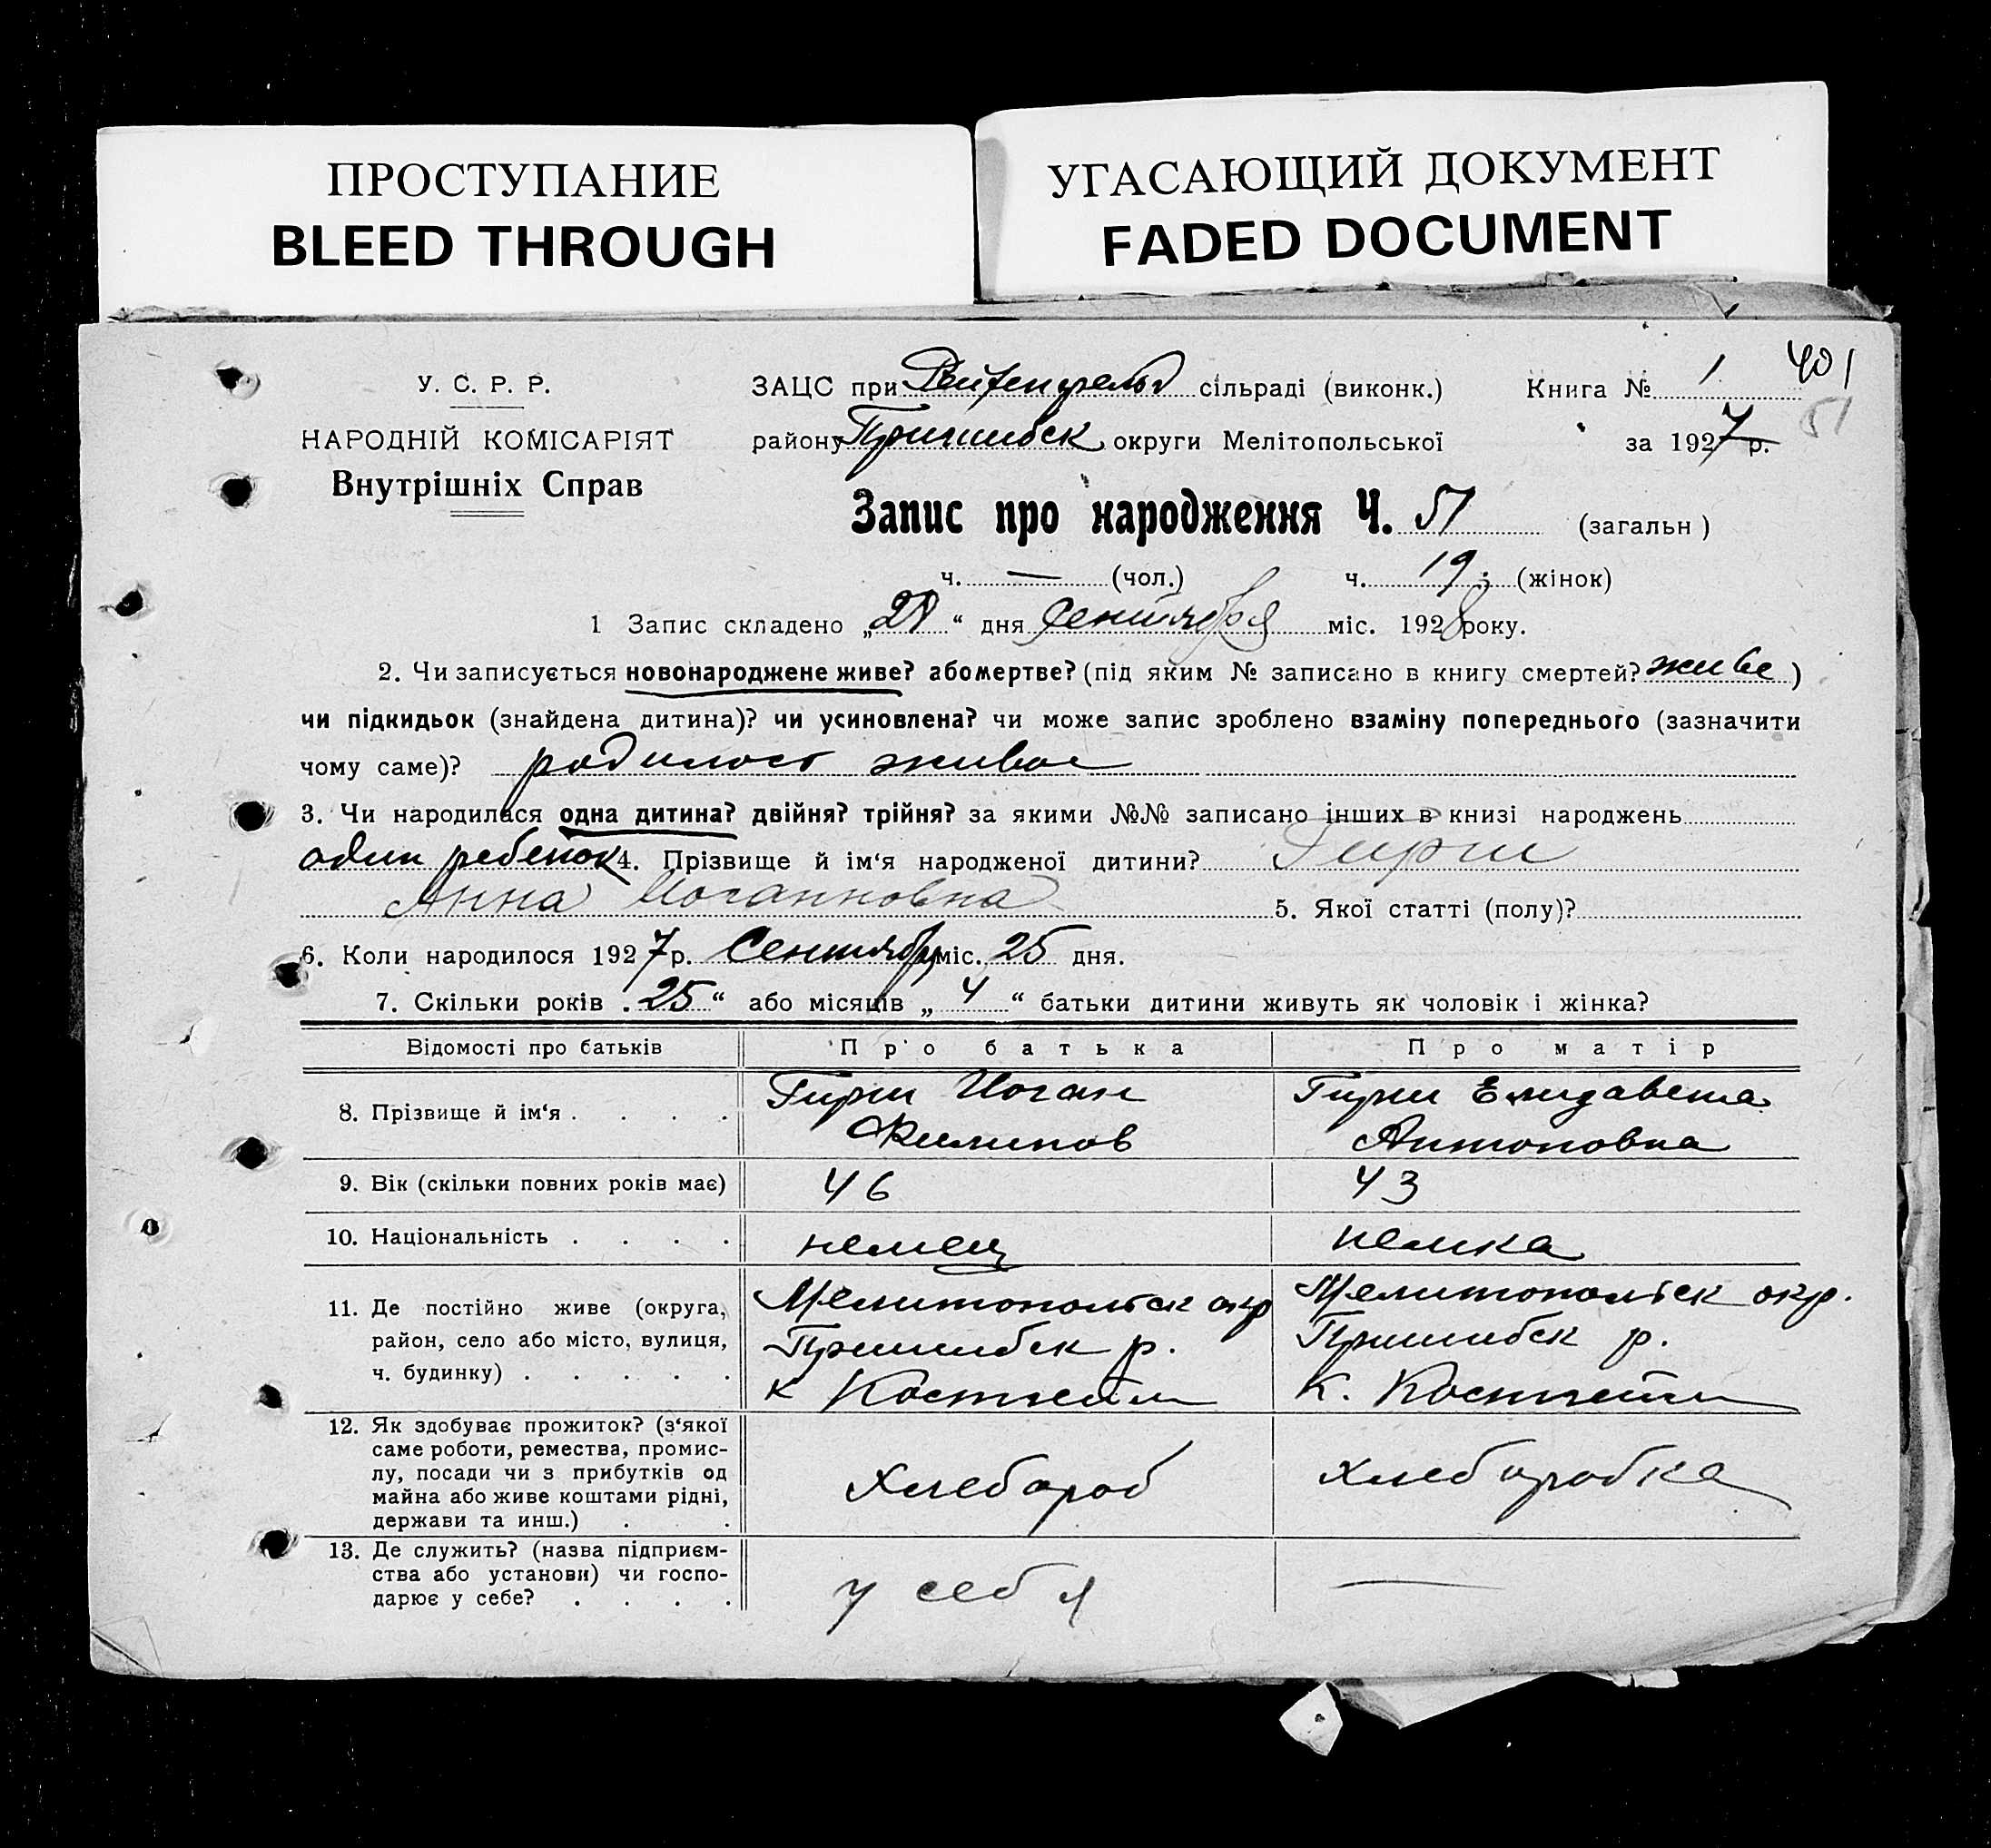 ПРОСТУПАНИЕ
BLEED THROUGH
УГАСАЮЩИЙ ДОКУМЕНТ
FADED DOCUMENT
401
51
У. С. Р. Р.
НАРОДНІЙ КОМІСАРІЯТ
Внутрішніх Справ
ЗАЦС при сільраді (виконк.) Книга № 1
району Пришибск округи Мелітопольської за 1927 р.
Запис про народження Ч. 51 (загальн)
ч. — (чол.) ч. 19 (жінок)
1 Запис складено „28“ дня Сентября міс. 1928 року.
2. Чи записується новонароджене живе? або мертве? (під яким № записано в книгу смертей? живе)
чи підкидьок (знайдена дитина)? чи усиновлена? чи може запис зроблено взаміну попереднього (зазначити
чому саме)? родилось живое
3. Чи народилася одна дитина? двійня? трійня? за якими №№ записано інших в книзі народжень
один ребенок 4. Прізвище й ім‘я народженої дитини? Гирш
Анна Иоганновна 5. Якої статті (полу)?
6. Коли народилося 1927 р. Сентября міс. 25 дня.
7. Скільки років „25“ або місяців „4“ батьки дитини живуть як чоловік і жінка?
Відомості про батьків Про батька Про матір
8. Прізвище й ім‘я . . . . Гирш Иоган Гирш Елизавета
Филипов Антоновна
9. Вік (скільки повних років має) 46 43
10. Національність . . . . немец немка
11. Де постійно живе (округа, Мелитопольск окр Мелитопольск окр.
район, село або місто, вулиця, Пришибск р. Пришибск р.
ч. будинку) . . . . . к Костгейм к. Костгейм
12. Як здобуває прожиток? (з‘якої
саме роботи, ремества, промис-
лу, посади чи з прибутків од
майна або живе коштами рідні,
держави та инш.) . . . хлебороб хлеборобка
13. Де служить? (назва підприєм-
ства або установи) чи госпо-
дарює у себе? . . . . у себя —